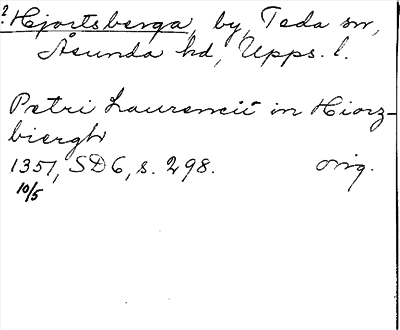 ? Hjortsberga, by, Teda sn,
Åsunda hd, Upps. l.
Petri Laurencii in Hiorz-
biergh
1351, SD 6, s. 298. orig.
10/5